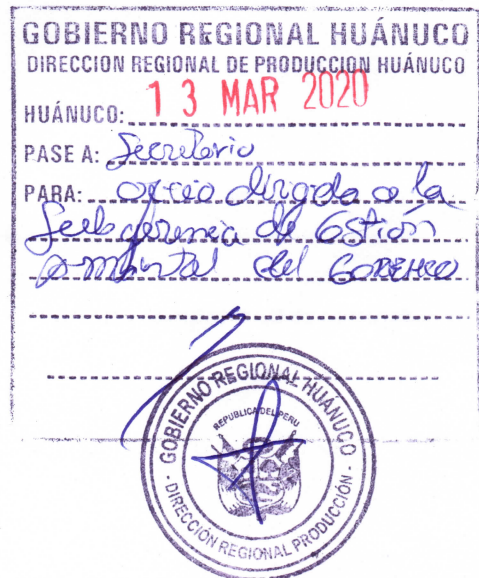 GOBIERNO REGIONAL HUÁNUCO
DIRECCION REGIONAL DE PRODUCCION HUÁNUCO
HUÁNUCO: 13 MAR 2020
PASE A: Secretario
PARA: oficio dirigido a la
Subgerencia de Gestión
Ambiental del GOREHCO
GOBIERNO REGIONAL HUÁNUCO
REPUBLICA DEL PERU
- DIRECCIÓN REGIONAL PRODUCCIÓN -